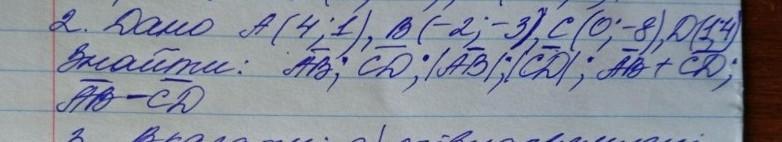 2. Дано A(4;1), B(-2;-3), C(0;-8), D(1;4)
Знайти: A̅B̅; C̅D̅; |A̅B̅|; |C̅D̅|; A̅B̅ + C̅D̅;
A̅B̅ - C̅D̅